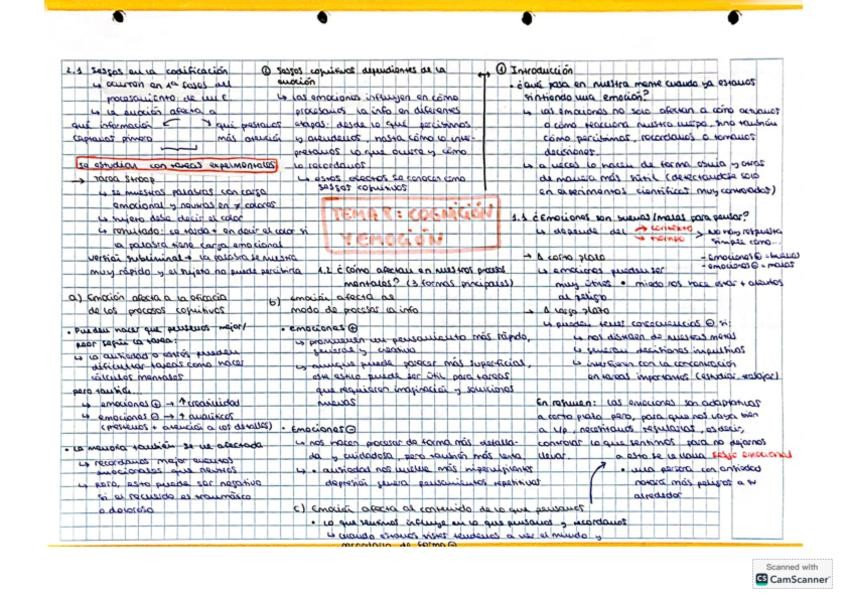 2.1 Sesgos en la codificación
↳ ocurren en 1ª fases del
procesamiento de un E
↳ la emoción afecta a
qué información
captamos primero
qué prestamos
más atención
se estudian con tareas experimentales
→ Tarea Stroop
↳ se muestras palabras con carga
emocional y neutras en ≠ colores
↳ sujeto debe decir el color
↳ resultado: se tarda + en decir el color si
la palabra tiene carga emocional
versión subliminal → la palabra se muestra
muy rápido y el sujeto no puede percibirla
② Sesgos cognitivos dependientes de la
emoción
↳ las emociones influyen en cómo
procesamos la info en diferentes
etapas: desde lo que percibimos
y atendemos, hasta cómo lo inter-
pretamos lo que ocurre y cómo
lo recordamos
↳ estos efectos se conocen como
sesgos cognitivos
① Introducción
• ¿qué pasa en nuestra mente cuando ya estamos
sintiendo una emoción?
↳ las emociones no solo afectan a cómo actuamos
o cómo reacciona nuestro cuerpo, sino también
cómo percibimos, recordamos o tomamos
decisiones.
↳ a veces lo hacen de forma obvia y otras
de manera más sutil (detectándose solo
en experimentos científicos muy controlados)
TEMA 8: COGNICIÓN
Y EMOCIÓN
1.1 ¿Emociones son buenas/malas para pensar?
↳ depende del → contexto
→ tiempo
> No hay respuesta
simple como...
- emociones ⊕ = buenas
- emociones ⊖ = malas
→ A corto plazo
↳ emociones pueden ser
muy útiles • miedo nos hace estar + alertas
al peligro
→ A largo plazo
↳ pueden tener consecuencias ⊖ si:
↳ nos distraen de nuestras metas
↳ generan decisiones impulsivas
↳ interfieren con la concentración
en tareas importantes (estudiar, trabajar)
En resumen: las emociones son adaptativas
a corto plazo pero, para que nos vaya bien
a l/p, necesitamos regularlas, es decir,
controlar lo que sentimos para no dejarnos
llevar.
a esto se le llama sesgo emocional
• una persona con ansiedad
notará más peligros a su
alrededor
1.2 ¿Cómo afectan en nuestros procesos
mentales? (3 formas principales)
a) Emoción afecta a la eficacia
de los procesos cognitivos
• Pueden hacer que pensemos mejor/
peor según la tarea:
↳ la ansiedad o estrés pueden
dificultar tareas como hacer
cálculos mentales
pero también...
↳ emociones ⊕ → ↑ creatividad
↳ emociones ⊖ → ↑ analíticos
(prestemos + atención a los detalles)
• La memoria también se ve afectada
↳ recordamos mejor eventos
emocionales que neutros
↳ pero, esto puede ser negativo
si el recuerdo es traumático
o doloroso
b) emoción afecta al
modo de procesar la info
• emociones ⊕
↳ promueven un pensamiento más rápido,
general y creativo
↳ aunque puede parecer más superficial,
ese estilo puede ser útil para tareas
que requieran imaginación y soluciones
nuevas
• Emociones ⊖
↳ nos hacen procesar de forma más detalla-
da y cuidadosa, pero también más lenta.
↳ • ansiedad nos vuelve más hipervigilantes
depresión genera pensamientos repetitivos
c) Emoción afecta al contenido de lo que pensamos
• lo que sentimos influye en lo que pensamos y recordamos
↳ cuando estamos tristes tendemos a ver el mundo y
recordarlo de forma ⊖
Scanned with
CS CamScanner